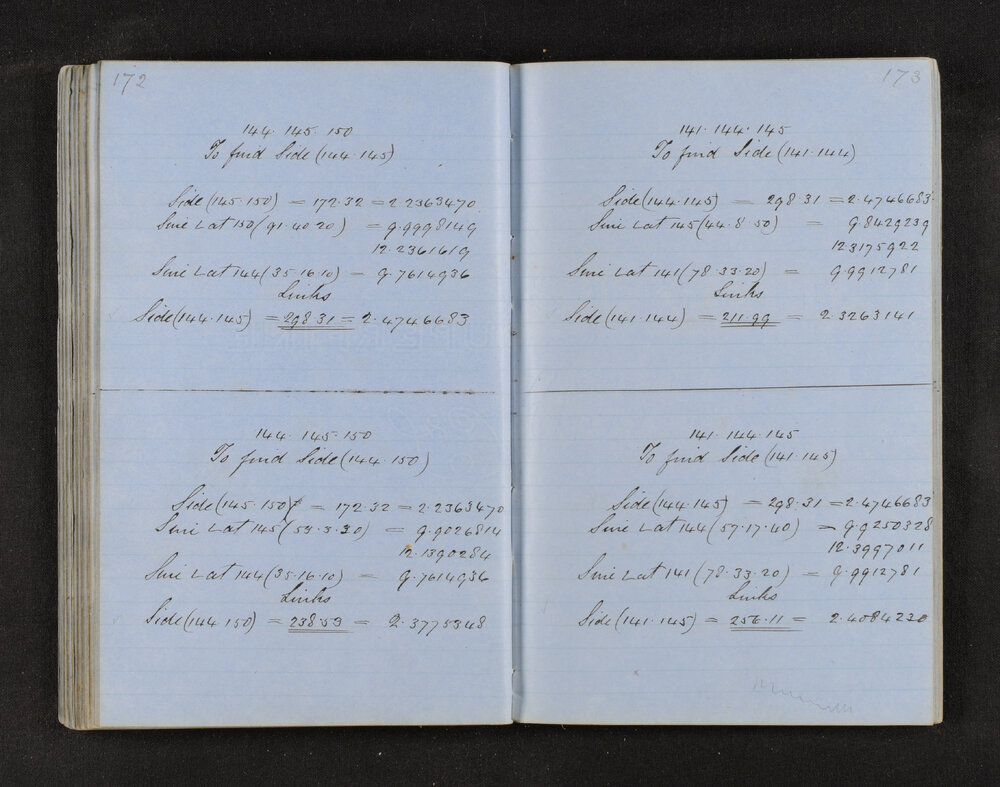 172
144. 145. 150
To find Side (144.145)
Side (145.150) = 172.32 = 2.2363470
Sine L at 150 (91.40.20) = 9.9998149
12.2361619
Sine L at 144 (35.16.10) = 9.7614936
Links
Side (144.145) = 298.31 = 2.4746683
144. 145. 150
To find Side (144.150)
Side (145.150) = 172.32 = 2.2363470
Sine L at 145 (53.3.30) = 9.9026814
12.1390284
Sine L at 144 (35.16.10) = 9.7614936
Links
Side (144.150) = 238.53 = 2.3775348
173
141. 144. 145
To find Side (141.144)
Side (144.145) = 298.31 = 2.4746683
Sine L at 145 (44.8.50) = 9.8429239
12.3175922
Sine L at 141 (78.33.20) = 9.9912781
Links
Side (141.144) = 211.99 = 2.3263141
141. 144. 145
To find Side (141.145)
Side (144.145) = 298.31 = 2.4746683
Sine L at 144 (57.17.40) = 9.9250328
12.3997011
Sine L at 141 (78.33.20) = 9.9912781
Links
Side (141.145) = 256.11 = 2.4084230